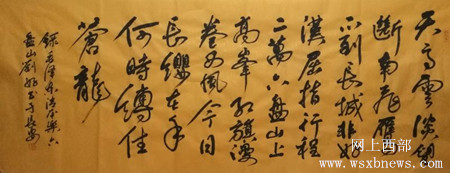 天高雲淡望
斷南飛雁
不到長城非好
漢屈指行程
二萬六盤山上
高峰紅旗漫
卷西風今日
長纓在手
何時縛住
蒼龍
錄毛澤東清平樂六
盤山劉于長安
网上西部
www.wsxbnews.com